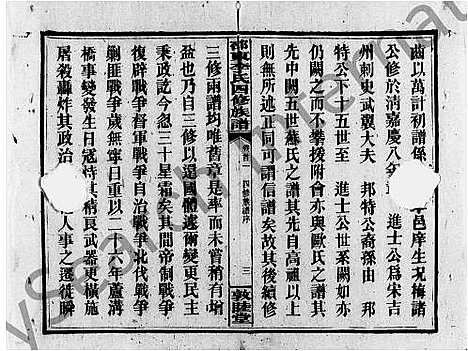 齒以萬計初譜係
公修於清嘉慶八年
邑庠生況梅諸
進士公為宋吉
州刺史武翼大夫 邦特公裔孫由 邦
特公下十五世至 進士公世系闕如亦
仍闕之而不攀援附會亦與歐氏之譜其
先中闕五世蘇氏之譜其先自高祖以上
則無所述正同可謂信譜矣故其後續修
邵東李氏四修族譜
卷首一 四修族譜序 三
敦睦堂
三修兩譜均唯舊章是率而未嘗稍有所增
益也乃自三修以還國體遞爾變更民主
秉政迄今忽三十星霜矣其間帝制戰爭
復辟戰爭督軍戰爭自治戰爭北伐戰爭
剿匪戰爭歲無寧日重以二十六年蘆溝
橋事變發生日寇恃其精良武器更橫施
屠殺轟炸其政治
人事之遷徙瞬